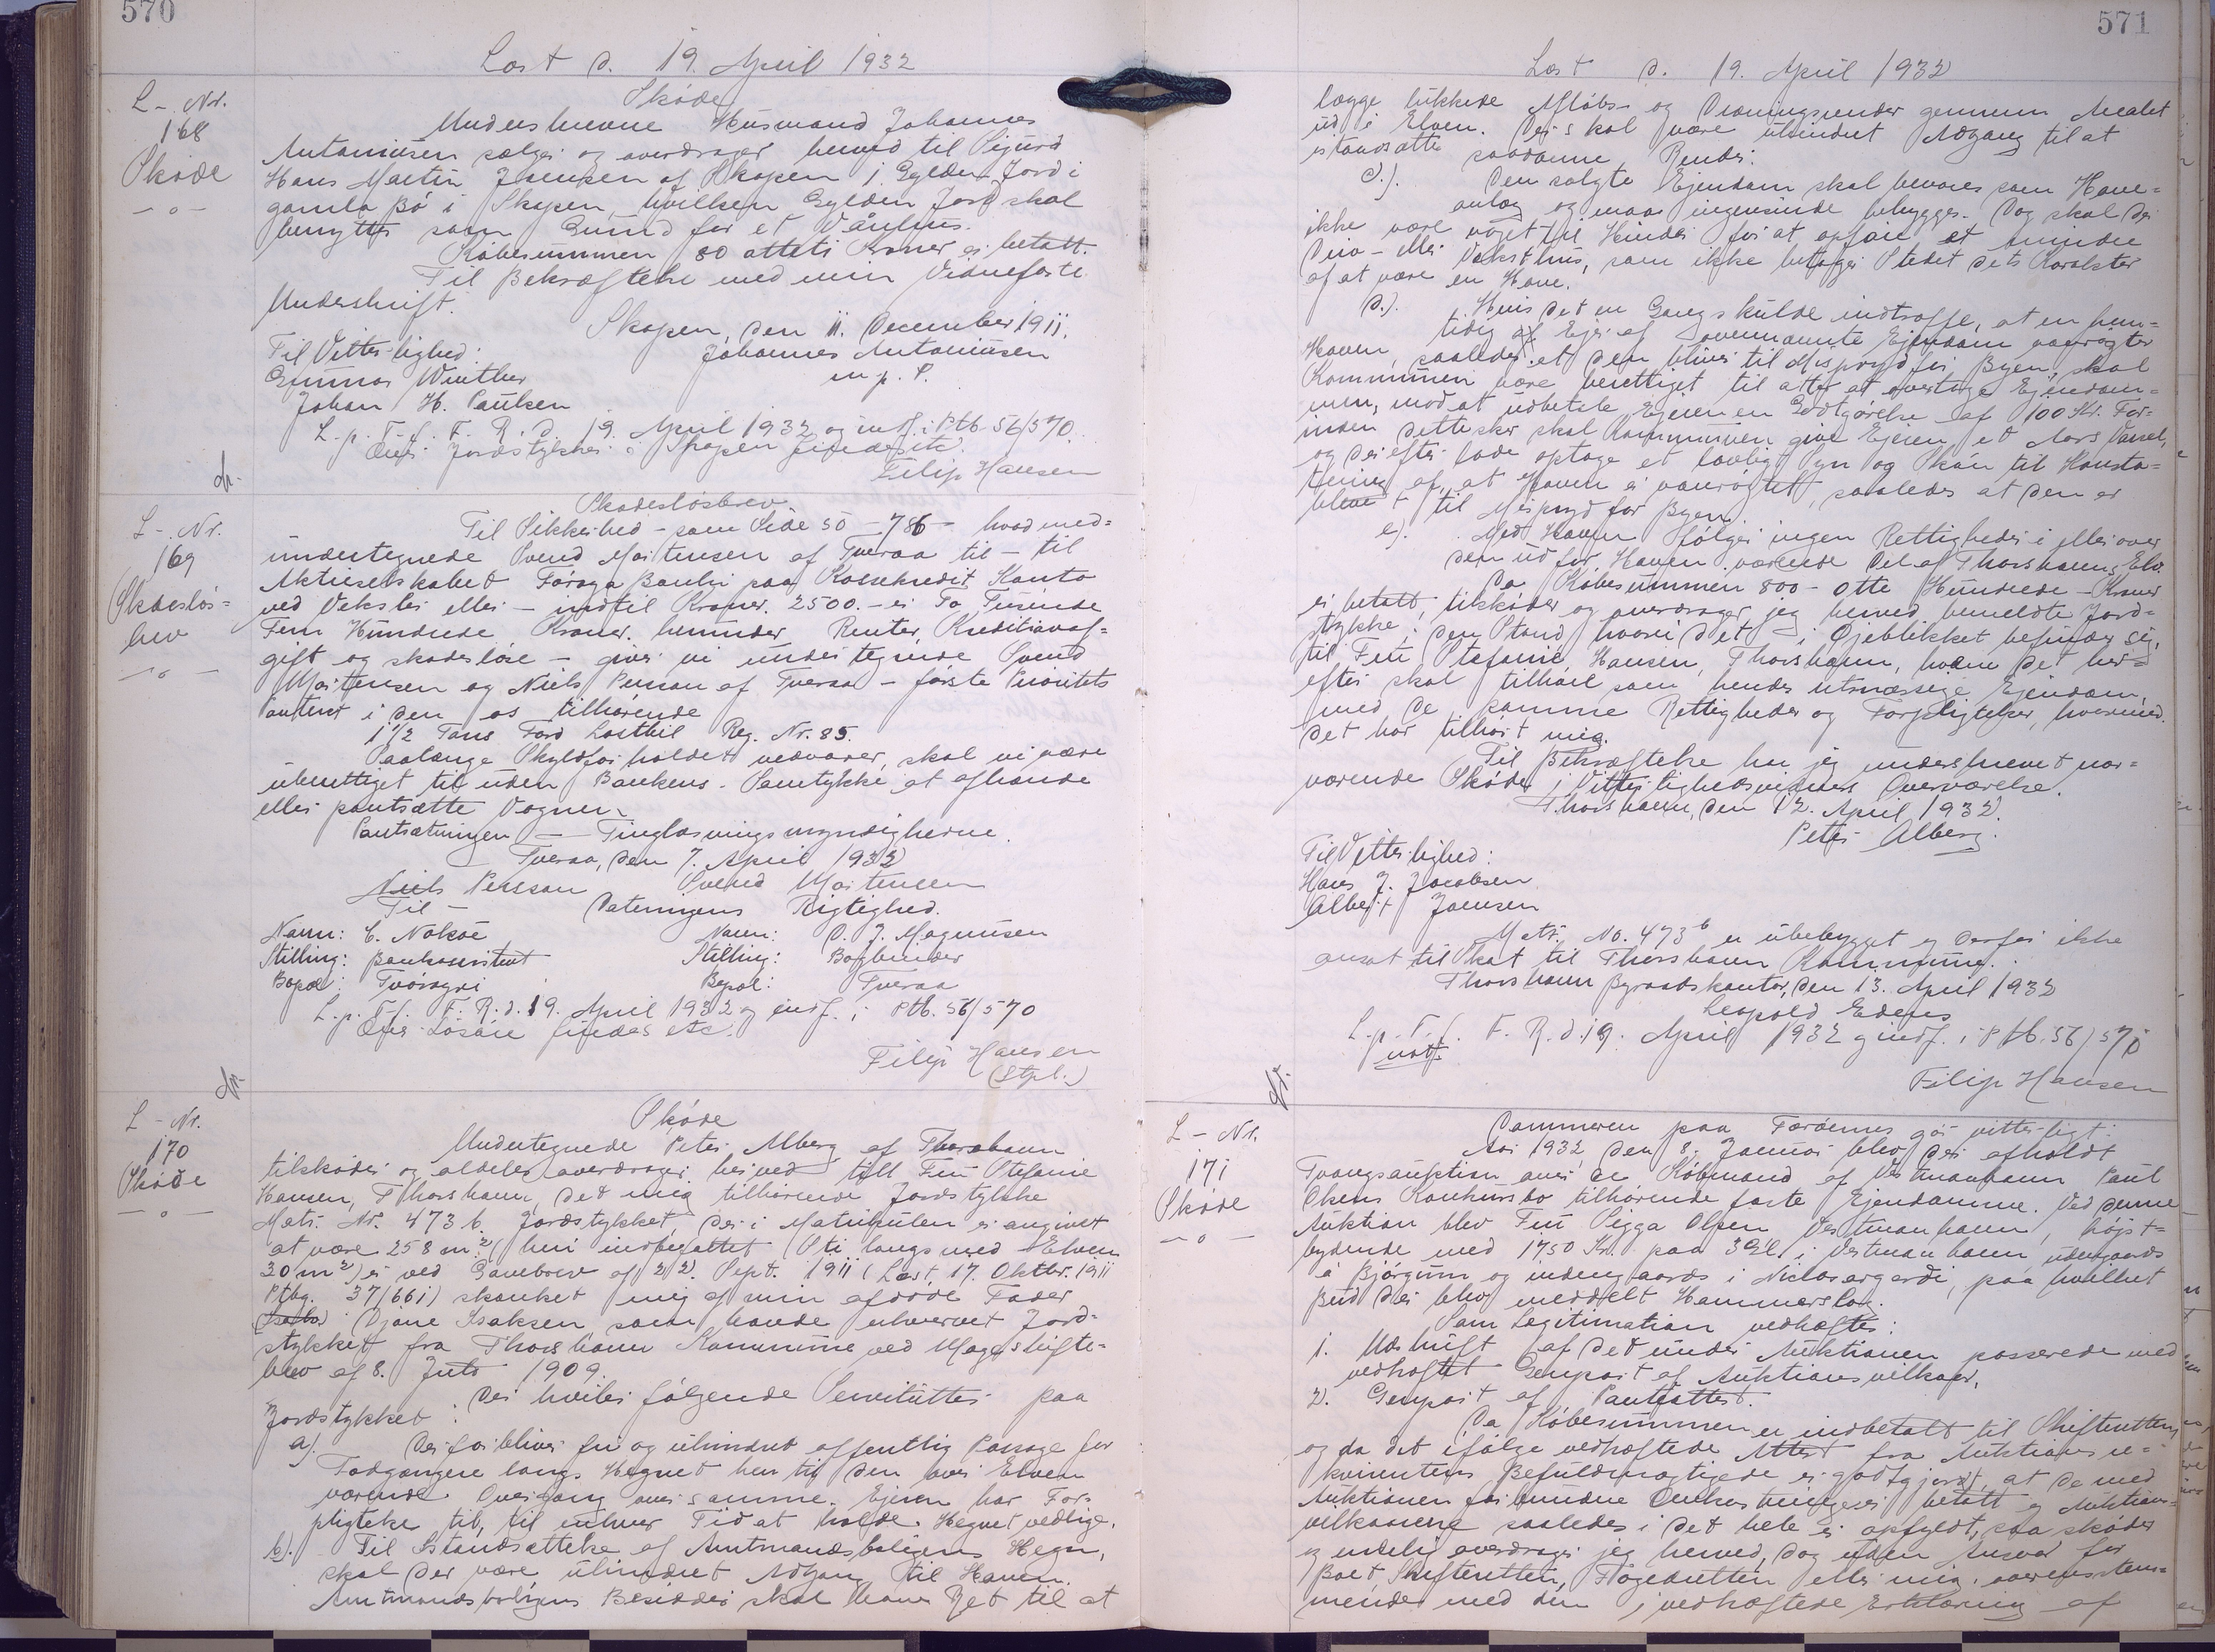 570
Læst d. 19. April 1932
L-Nr.
168
Skøde
Skøde
Underskrevne Husmand Johannes
Antoniusen sælger og overdrager herved til Sigurd
Hans Martin Joensen af Skopen 1 Gylden Jord i
gamla Bø i Skopen, hvilken Gylden Jord skal
benyttes som Grund for et Vånhus.
Købesummen 80 otteti Kroner er betalt.
Til Bekræftelse med min Vidnefaste
Underskrift.
Skopen, den 11. December 1911.
Til Vitterlighed: Johannes Antoniusen
Gunnar Winther m. p. S.
Johan H. Paulsen
L. p. T. f. F. R. d. 19. April 1932 og indf. i Ptb. 56/570.
Andr. Jordstykker i Skopen findes etc.
Filip Hansen
L-Nr.
169
Skadesløs=
brev
Skadesløsbrev
Til Sikkerhed - som Side 50 - 786 - hvad med=
undertegnede Svend Mortensen af Tveraa til - til
Aktieselskabet Føroya Banki paa Kassekredit Konto
ved Veksler eller - indtil Kroner 2500. - er To Tusinde
Fem Hundrede Kroner. herunder Renter, Kreditivaf=
gift og skadesløse - giver vi undertegnede Svend
Mortensen og Niels Persson af Tveraa - første Prioritets
Panteret i den os tilhørende
1½ Tons Ford Lastbil Reg. Nr. 85.
Saalænge Skyldforholdet vedvarer, skal vi være
uberettiget til uden Bankens Samtykke at afhænde
eller pantsætte Vognen.
Pantsætningen - Tinglæsningsmyndighederne.
Tveraa, den 7. April 1932
Niels Persson Svend Mortensen
Til - Dateringens Rigtighed.
Navn: C. Nolsøe Navn: D. J. Magnusen
Stilling: Bankassistent Stilling: Bogbinder
Bopæl: Tvøroyri Bopæl: Tveraa
L. p. T. f. F. R. d. 19. April 1932 og indf. i Ptb. 56/570
Andr. Løsøre findes etc.
Filip Hansen
(Stpl.)
L-Nr.
170
Skøde
Skøde
Undertegnede Peter Alberg af Thorshavn
tilskøder og aldeles overdrager herved till Frú Stefanie
Hansen, Thorshavn, det mig tilhørende Jordstykke
Matr. Nr. 473 b. Jordstykket, der i Matrikulen er angivet
at være 258 m² (heri indbefattet Sti langs med Elven
30 m²) er ved Gavebrev af 22. Sept. 1911 (Læst 17. Oktbr. 1911
Ptbg. 37/661) skænket mig af min afdøde Fader
Djone Isaksen som havde erhvervet Jord=
stykket fra Thorshavn Kommune ved Mageskifte=
brev af 8. Juli 1909.
Der hviler følgende Servitutter paa
Jordstykket:
a). Der forbliver fri og uhindret offentlig Passage for
Fodgængere langs Hegnet hen til den over Elven
værende Overgang over samme. Ejeren har For-
pligtelse til, til enhver Tid at holde Hegnet vedlige.
b). Til Istandsættelse af Amtmandsboligens Hegn,
skal der være uhindret Adgang til Haven.
Amtmandsboligens Besidder skal have Ret til at
571
Læst d. 19. April 1932
lægge lukkede Afløbs- og Dræningsrender gennem Arealet
ud i Elven. Der skal være uhindret Adgang til at
istandsætte saadanne Render.
c.). Den solgte Ejendom skal bevares som Have=
anlæg og maa ingensinde bebygges. Dog skal der
ikke være noget til Hinder for at opføre et mindre
Driv- eller Veksthus, som ikke betager Stedet dets Karakter
af at være en Have.
d.). Hvis det en Gang skulde indtræffe, at en frem=
tidig Ejer af ovennævnte Ejendom vanrøgter
Haven, saaledes at den bliver til Mispryd for Byen, skal
Kommunen være berettiget til atter at overtage Ejendom=
men, mod at udbetale Ejeren en Godtgørelse af 100 Kr. For-
inden dette sker skal Kommunen give Ejeren et Aars Varsel,
og derefter lade optage et lovligt Syn og Skøn til Konsta=
tering af, at Haven er vanrøgtet, saaledes at den er
blevet til Mispryd for Byen.
e). Med Haven følger ingen Rettigheder i eller over
den ud for Haven værende Del af Thorshavns Elv.
Da Købesummen 800 - Otte Hundrede - Kroner
er betalt, tilskøder og overdrager jeg herved bemeldte Jord=
stykke i den Stand, hvori det i Øjeblikket befinder sig,
til Frú Stefanie Hansen, Thorshavn, hvem det her=
efter skal tilhøre som hendes retmæssige Ejendom,
med de samme Rettigheder og Forpligtelser, hvormed
det har tilhørt mig.
Til Bekræftelse har jeg underskrevet nær=
værende Skøde i Vitterlighedsvidners Overværelse.
Thorshavn, den 12. April 1932.
Peter Alberg.
Til Vitterlighed:
Hans J. Jacobsen
Albert Joensen
Matr. No. 473 b er ubebygget og derfor ikke
ansat til Skat til Thorshavn Kommune.
Thorshavn Byraadskontor, den 13. April 1932
Leopold Edens
L. p. T. f. F. R. d. 19. April 1932 og indf. i Ptb. 56/570
Filip Hansen
L-Nr.
171
Skøde
Dommeren paa Færøerne gør vitterligt:
Aar 1932 den 8. Januar blev der afholdt
Tvangsauktion over de Købmand af Vestmanhavn Paul
Olsens Konkursbo tilhørende faste Ejendomme. Ved denne
Auktion blev Frú Sigga Olsen, Vestmanhavn, højst=
bydende med 1750 Kr. paa 3 Gl. i Vestmanhavn udengaards
á Bjørgum og indengaards i Niclasargerði, paa hvilket
Bud der blev meddelt Hammerslag.
Som Legitimation vedhæftes:
1. Udskrift af det under Auktionen passerede med
vedhæftet Genpart af Auktionsvilkaar,
2. Genpart af Pantattest.
Da Købesummen er indbetalt til Skifteretten
og da det ifølge vedhæftede Attest fra Auktionsre=
kvirentens Befuldmægtigede er godtgjort, at de med
Auktionen forbundne Omkostninger er betalt og Auktions-
vilkaarene saaledes i det hele er opfyldt, saa skøder
og endelig overdrager jeg herved, dog uden Ansvar for
Boet, Skifteretten, Fogedretten eller mig, overensstem=
mende med den i vedhæftede Erklæring af